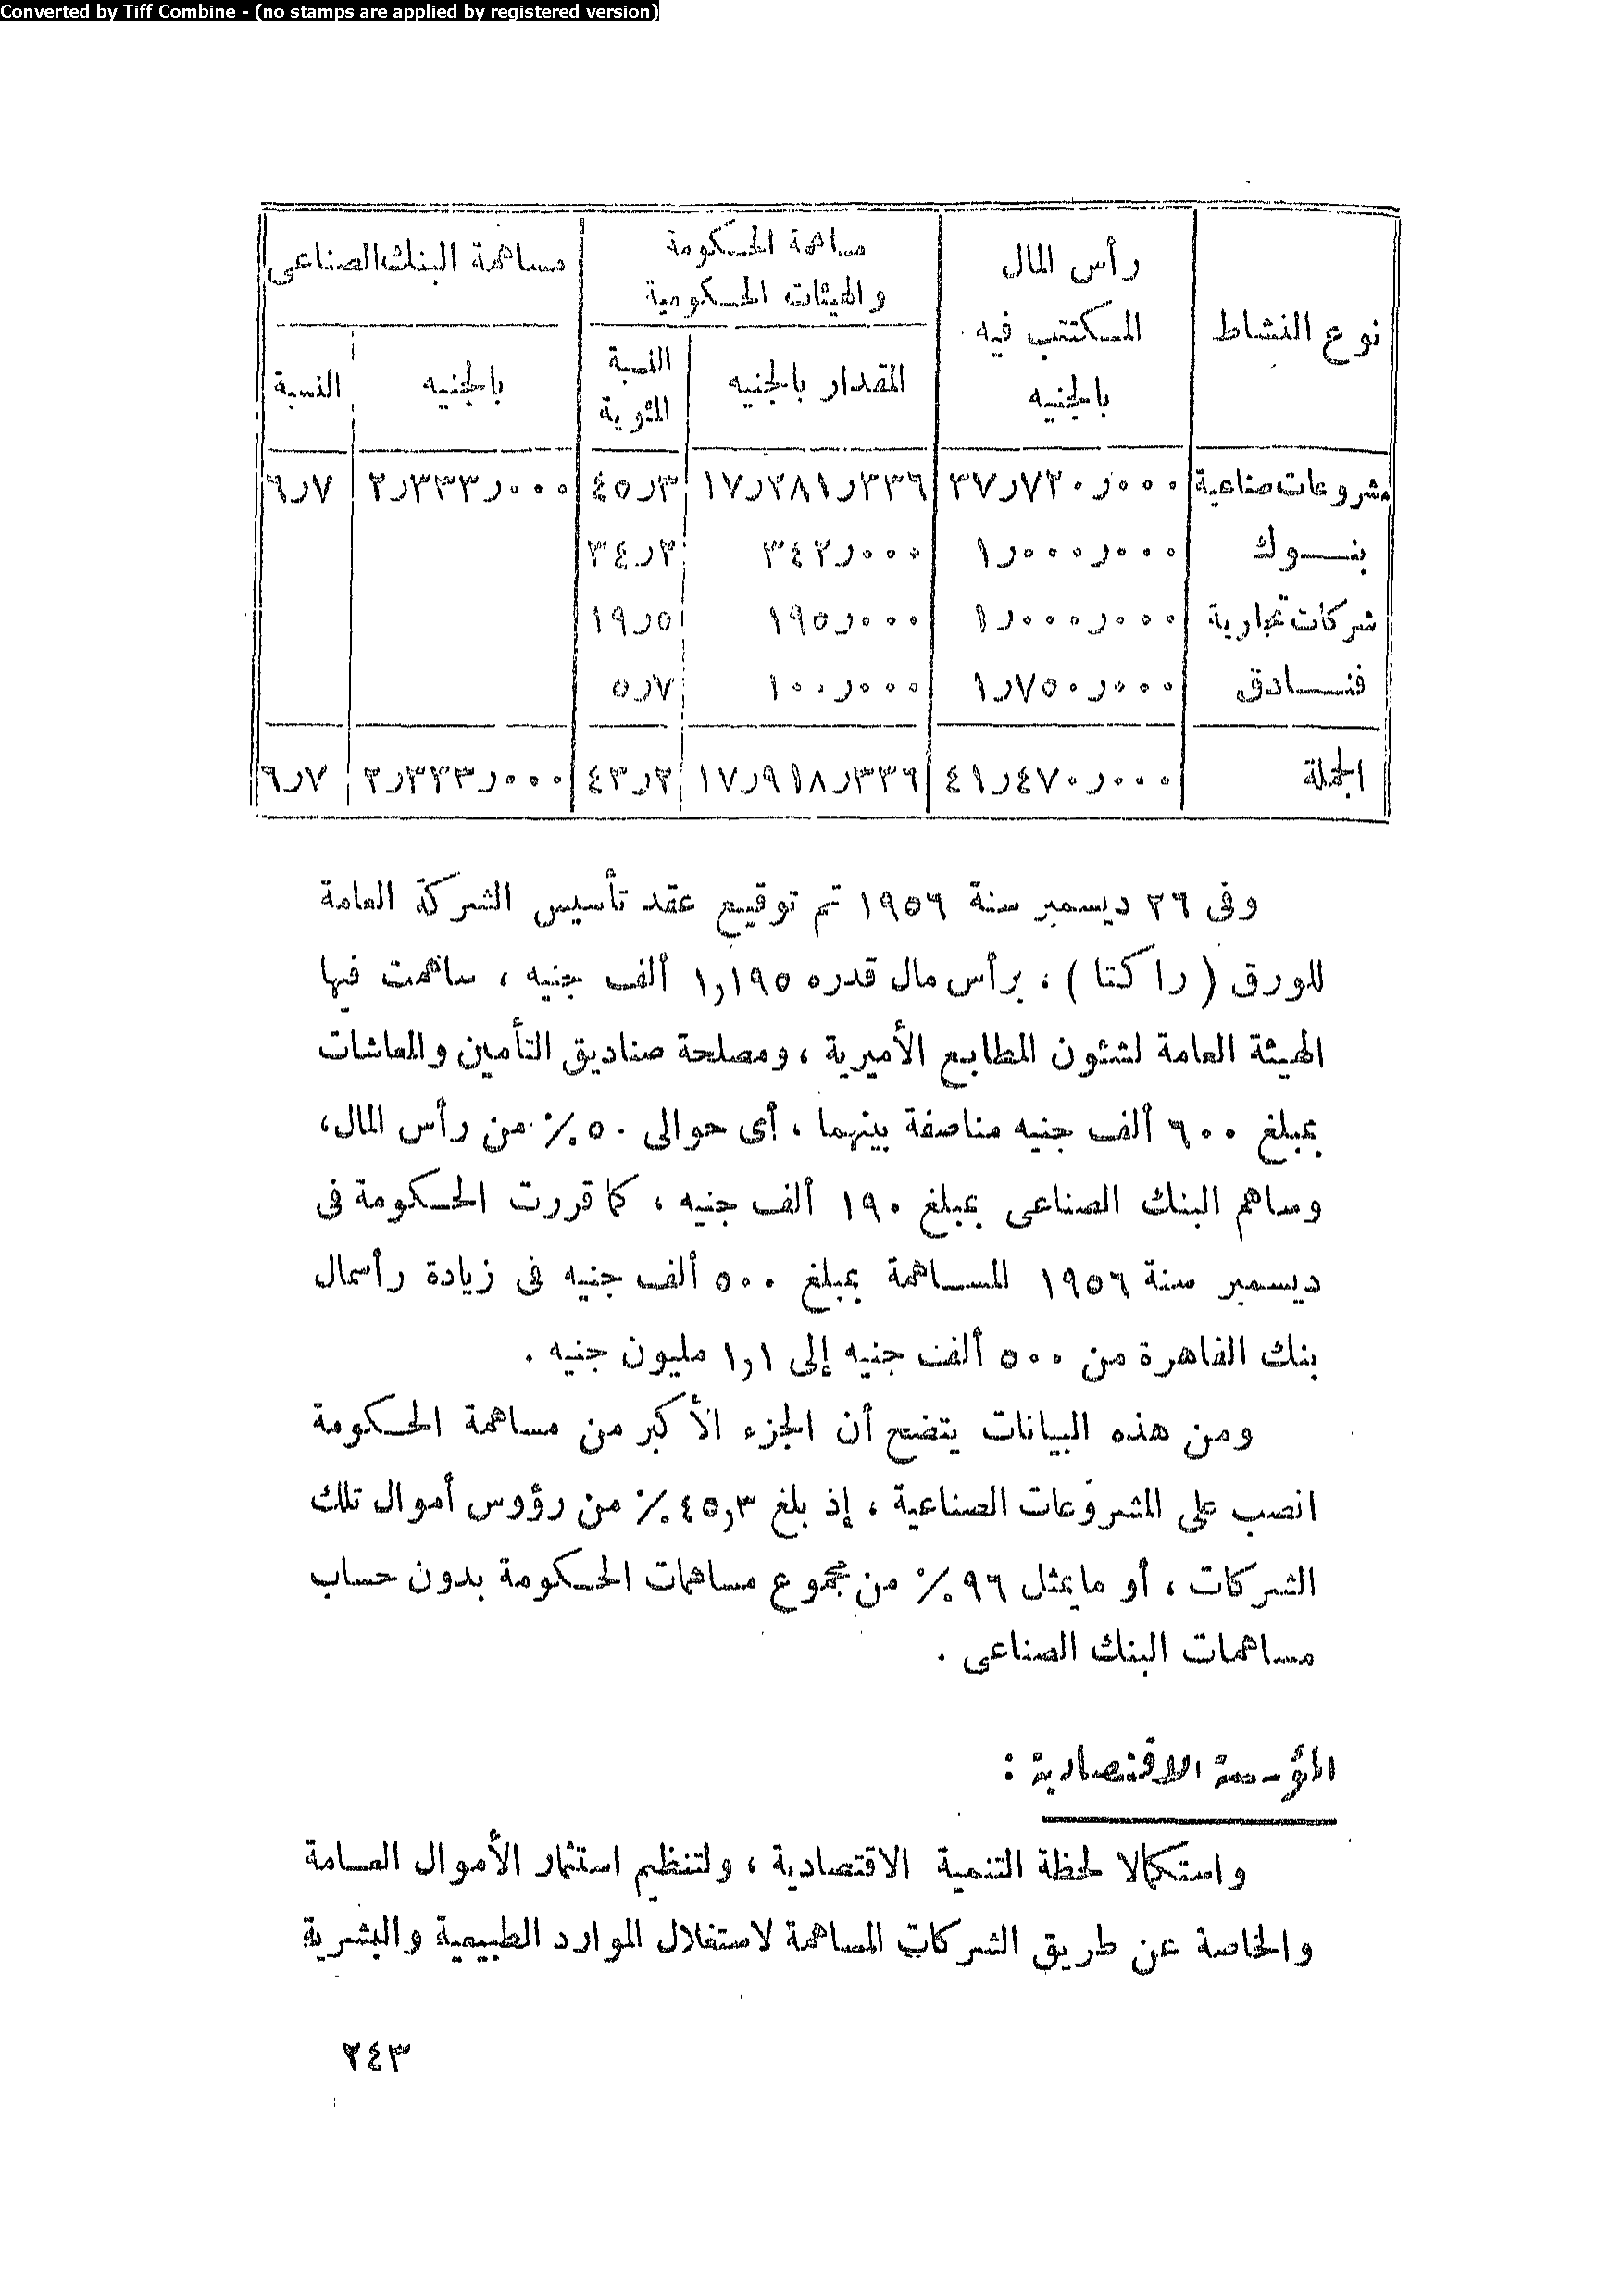 Converted by Tiff Combine - (no stamps are applied by registered version)
نوع النشاط | رأس المال المكتتب فيه بالجنيه | مساهمة الحكومة والهيئات الحكومية | مساهمة البنك الصناعى
المقدار بالجنيه | النسبة المئوية | بالجنيه | النسبة
مشروعات صناعية | ٣٧ر٧٢٠ر٠٠٠ | ١٧ر٢٨١ر٣٣٦ | ٤٥ر٣ | ٢ر٣٣٣ر٠٠٠ | ٦ر٧
بنــوك | ١ر٠٠٠ر٠٠٠ | ٣٤٢ر٠٠٠ | ٣٤ر٢
شركات تجارية | ١ر٠٠٠ر٠٠٠ | ١٩٥ر٠٠٠ | ١٩ر٥
فنــادق | ١ر٧٥٠ر٠٠٠ | ١٠٠ر٠٠٠ | ٥ر٧
الجملة | ٤١ر٤٧٠ر٠٠٠ | ١٧ر٩١٨ر٣٣٦ | ٤٣ر٢ | ٢ر٣٣٣ر٠٠٠ | ٦ر٧
وفى ٢٦ ديسمبر سنة ١٩٥٦ تم توقيع عقد تأسيس الشركة العامة
للورق (راكتا) ، برأس مال قدره ١,١٩٥ ألف جنيه ، ساهمت فيها
الهيئة العامة لشئون المطابع الأميرية ، ومصلحة صناديق التأمين والمعاشات
بمبلغ ٦٠٠ ألف جنيه مناصفة بينهما ، أى حوالى ٥٠٪ من رأس المال،
وساهم البنك الصناعى بمبلغ ١٩٠ ألف جنيه ، كما قررت الحكومة فى
ديسمبر سنة ١٩٥٦ المساهمة بمبلغ ٥٠٠ ألف جنيه فى زيادة رأسمال
بنك القاهرة من ٥٠٠ ألف جنيه إلى ١,١ مليون جنيه .
ومن هذه البيانات يتضح أن الجزء الأكبر من مساهمة الحكومة
انصب على المشروعات الصناعية ، إذ بلغ ٤٥,٣٪ من رؤوس أموال تلك
الشركات ، أو ما يمثل ٩٦٪ من مجموع مساهمات الحكومة بدون حساب
مساهمات البنك الصناعى .
المؤسسة الاقتصادية :
واستكمالا لخطة التنمية الاقتصادية ، ولتنظيم استثمار الأموال العامة
والخاصة عن طريق الشركات المساهمة لاستغلال الموارد الطبيعية والبشرية
٢٤٣